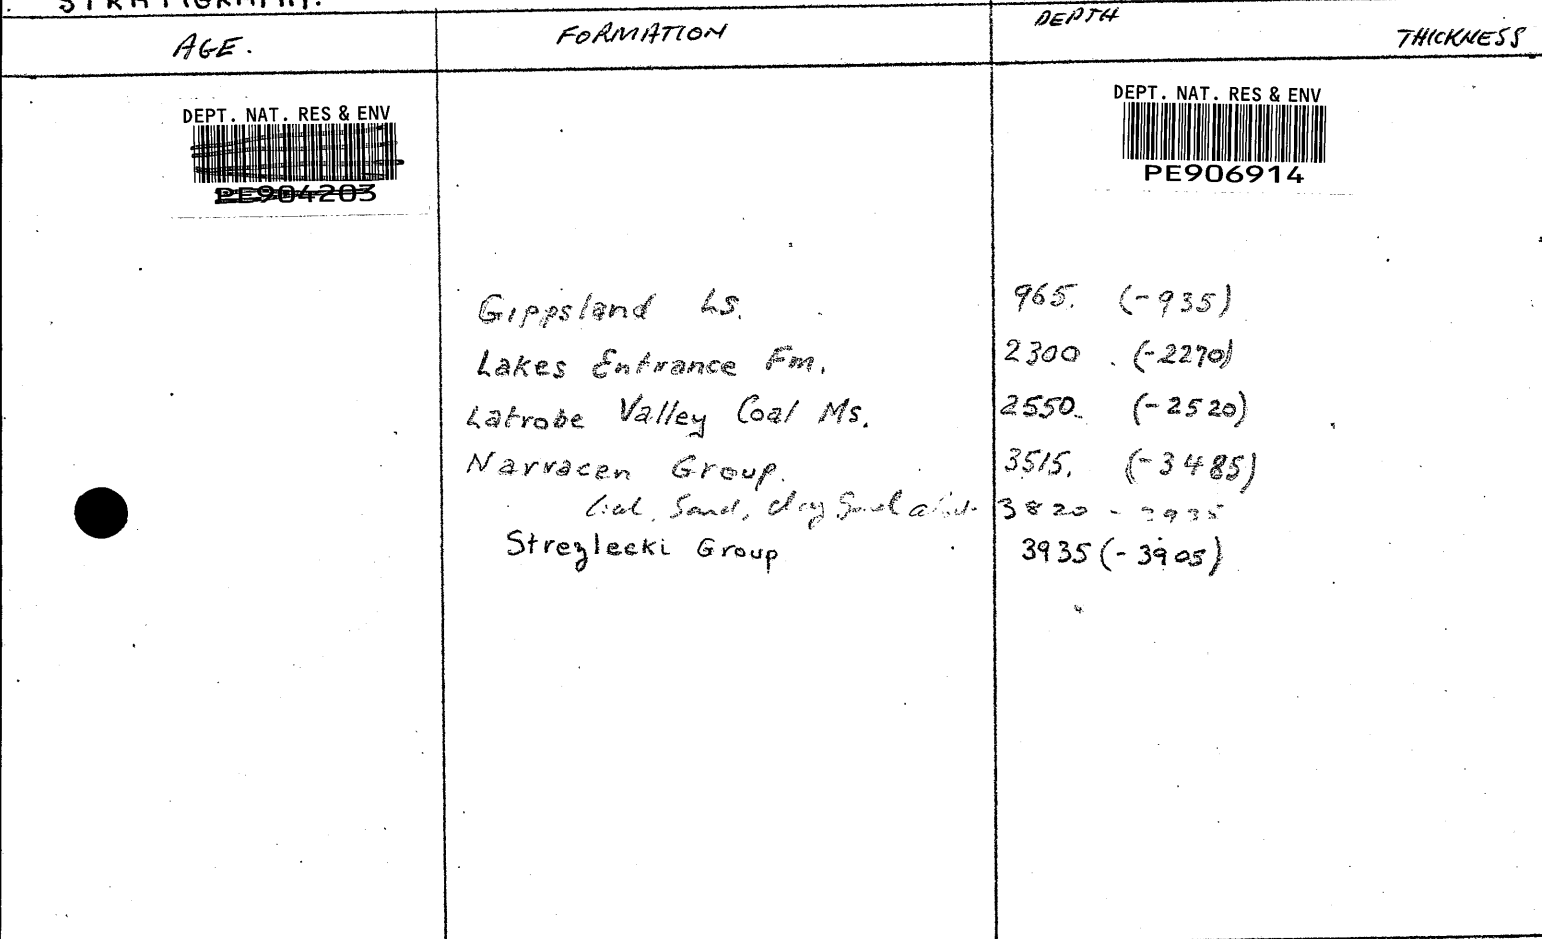 STRATIGRAPHY.
AGE. FORMATION DEPTH THICKNESS
DEPT. NAT. RES & ENV DEPT. NAT. RES & ENV
PE904203 PE906914
Gippsland Ls. 965. (-935)
Lakes Entrance Fm. 2300. (-2270)
Latrobe Valley Coal Ms. 2550. (-2520)
Narracen Group. 3515. (-3485)
Sand, 3820 - 3935
Strezlecki Group 3935 (-3905)